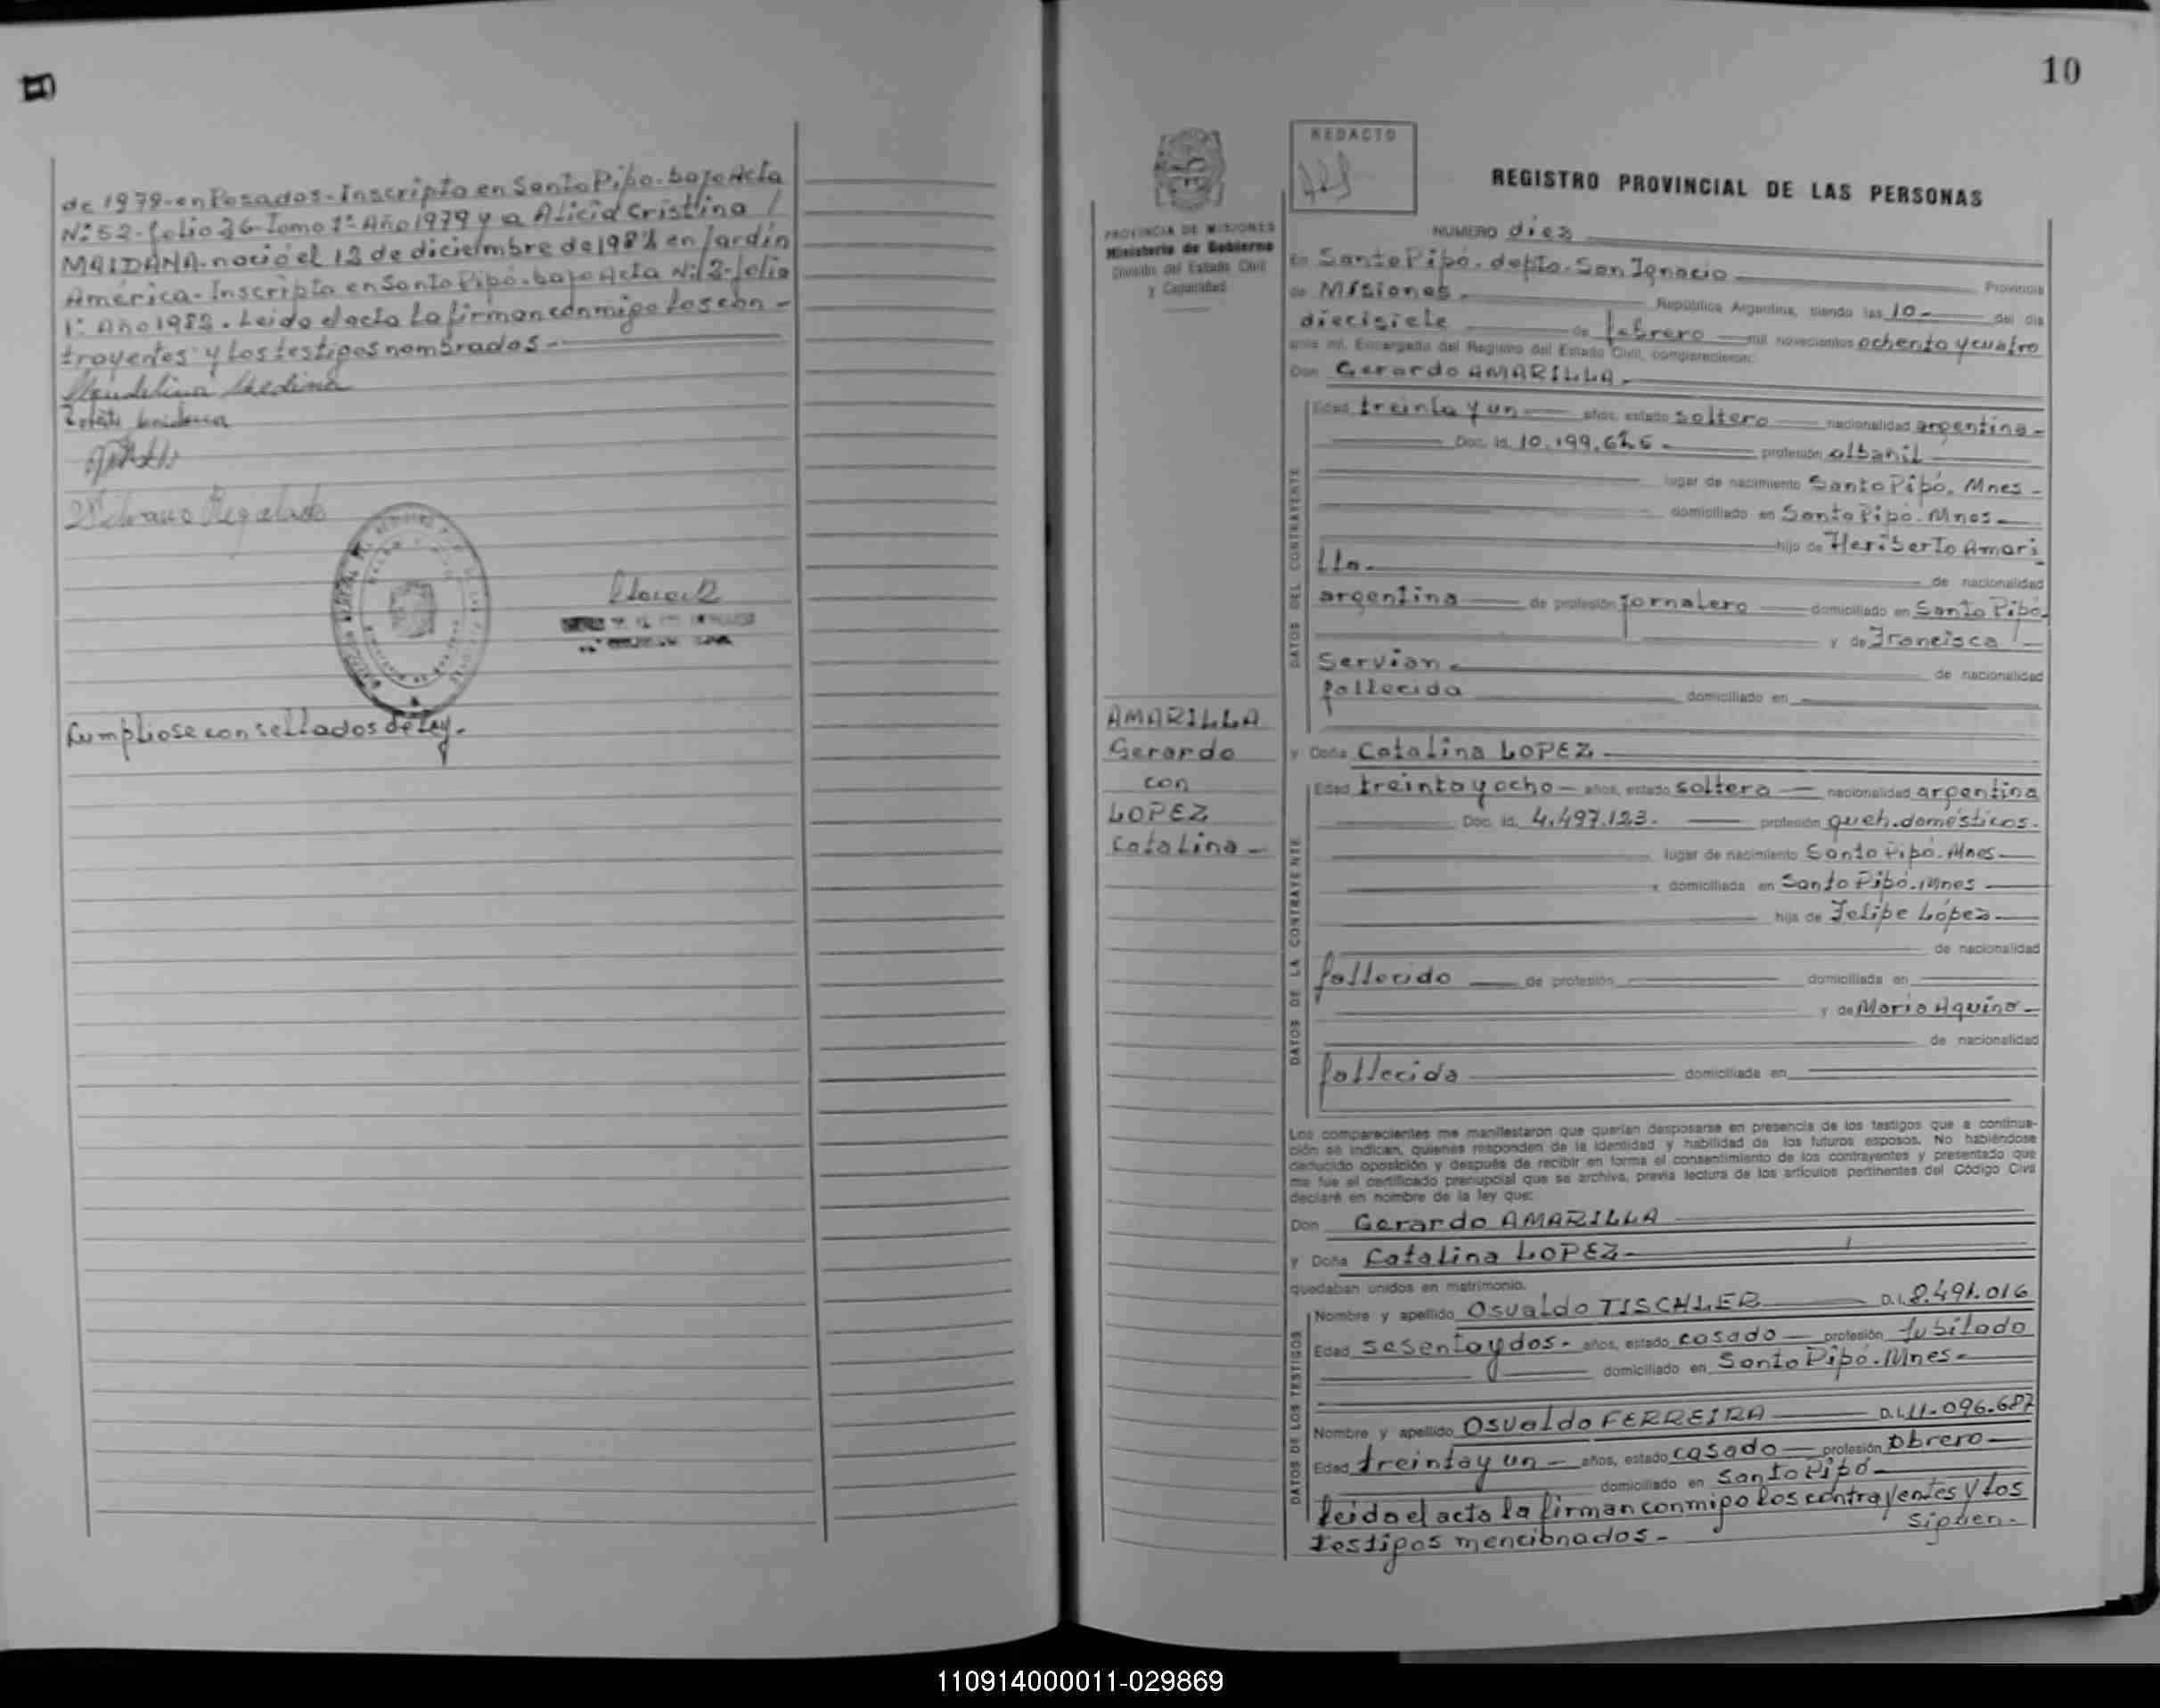 de 1979-en Posadas-Inscripta en Santo Pipó-bajo Acta
Nº 52-folio 26-Tomo 1º-Año 1979 y a Alicia Cristina /
MAIDANA-nació el 12 de diciembre de 1981 en Jardín
América-Inscripta en Santo Pipó-bajo Acta Nº 2-folio
1º Año 1982. Leida el acta la firman conmigo los con-
trayentes y los testigos nombrados-
Cumpliose con sellados de Ley.
10
REDACTO
REGISTRO PROVINCIAL DE LAS PERSONAS
PROVINCIA DE MISIONES
Ministerio de Gobierno
División del Estado Civil
y Capacidad
NUMERO diez
En Santo Pipó. depto. San Ignacio Provincia
de Misiones. República Argentina, siendo las 10- del día
diecisiete de febrero mil novecientos ochenta y cuatro
ante mí, Encargado del Registro del Estado Civil, comparecieron:
Don Gerardo AMARILLA.
DATOS DEL CONTRAYENTE
Edad treinta y un años, estado soltero nacionalidad argentina-
Doc. Id. 10.199.625- profesión albañil
lugar de nacimiento Santo Pipó. Mnes-
domiciliado en Santo Pipó. Mnes-
hijo de Heriberto Amari
lla- de nacionalidad
argentina de profesión jornalero domiciliado en Santo Pipó-
y de Francisca
Servian- de nacionalidad
fallecida domiciliado en
AMARILLA
Gerardo
con
LOPEZ
Catalina-
y Doña Catalina LOPEZ-
DATOS DE LA CONTRAYENTE
Edad treinta y ocho- años, estado soltera nacionalidad argentina
Doc. Id. 4.497.123. profesión queh. domésticos.
lugar de nacimiento Santo Pipó. Mnes-
domiciliada en Santo Pipó. Mnes
hija de Felipe López-
de nacionalidad
fallecido de profesión domiciliada en
y de María Aquino-
de nacionalidad
fallecida domiciliada en
Los comparecientes me manifestaron que querían desposarse en presencia de los testigos que a continua-
ción se indican, quienes responden de la identidad y habilidad de los futuros esposos. No habiéndose
deducido oposición y después de recibir en forma el consentimiento de los contrayentes y presentado que
me fue el certificado prenupcial que se archiva, previa lectura de los artículos pertinentes del Código Civil
declaré en nombre de la ley que:
Don Gerardo AMARILLA
y Doña Catalina LOPEZ-
quedaban unidos en matrimonio.
DATOS DE LOS TESTIGOS
Nombre y apellido Osvaldo TISCHLER D.I. 8.491.016
Edad sesenta y dos- años, estado casado profesión Jubilado
domiciliado en Santo Pipó. Mnes-
Nombre y apellido Osvaldo FERREIRA D.I. 11.096.687
Edad treinta y un- años, estado casado profesión obrero
domiciliado en Santo Pipó-
leida el acta la firman conmigo los contrayentes y los
testigos mencionados- Siguen-
110914000011-029869